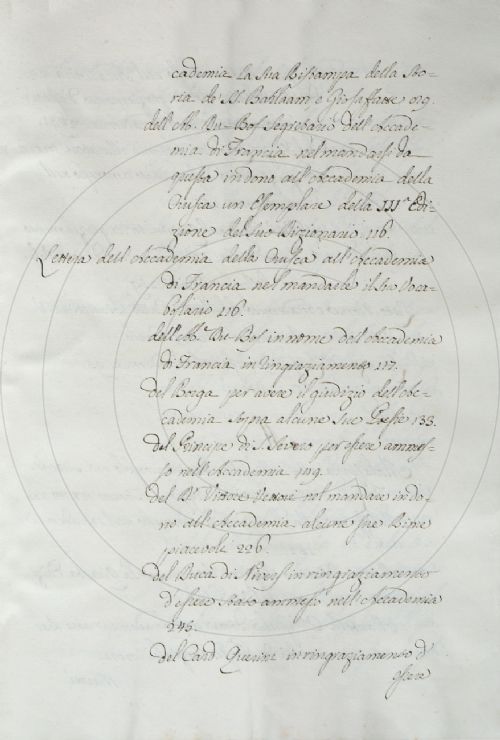 cademia la sua Ristampa della Sto-
ria de' SS. Barlaam e Giosaffatte 019.
dell' Ab. Du-Bos Segretario dell' Accade-
mia di Francia nel mandarsi da
questa in dono all' Accademia della
Crusca un Esemplare della III.ª Edi-
zione del suo Dizionario 116.
Lettera dell' Accademia della Crusca all' Accademia
di Francia nel mandarle il suo Voca-
bolario 116.
dell' Ab.e Du-Bos in nome dell' Accademia
di Francia in ringraziamento 117.
del Borga per avere il giudizio dell' Ac-
cademia sopra alcune sue Poesie 133.
del Principe di S. Severo per essere ammes-
so nell' Accademia 149.
del D.r Vittore Vettori nel mandare in do-
no all' Accademia alcune sue Rime
piacevoli 226.
del Duca di Nivers in ringraziamento
d'essere stato ammesso nell' Accademia
245.
del Card. Querini in ringraziamento d'
essere